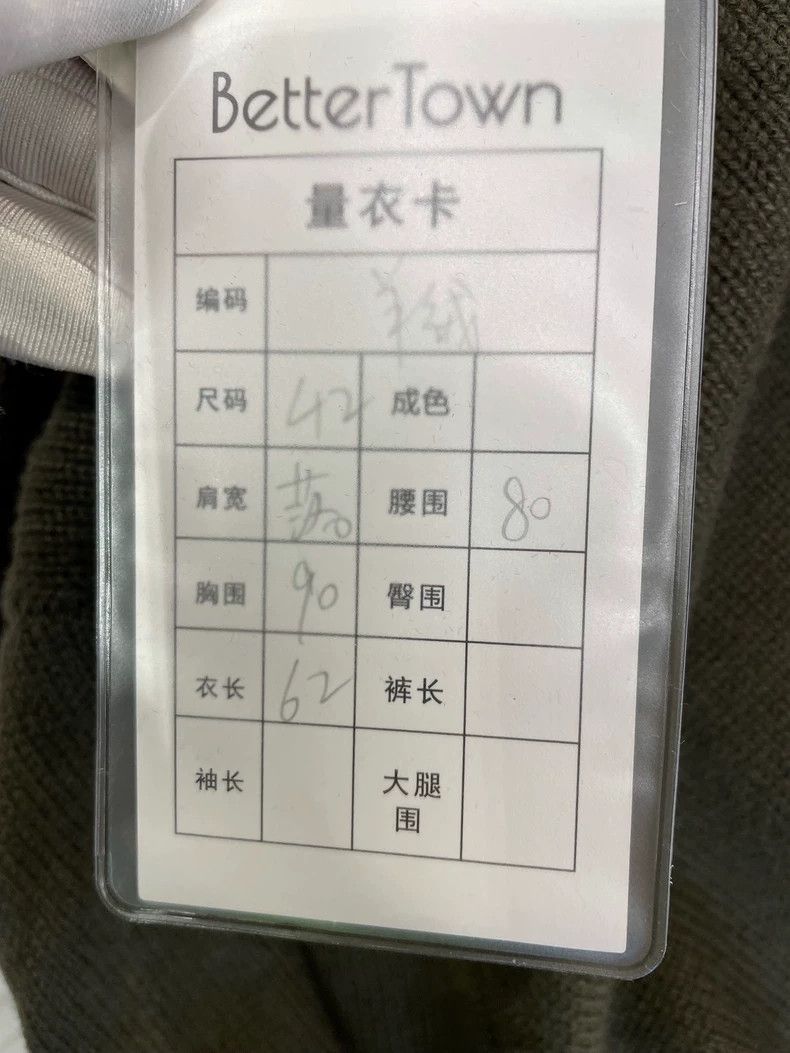 BetterTown
量衣卡
编码 羊绒
尺码 42 成色
肩宽 腰围 80
胸围 90 臀围
衣长 62 裤长
袖长 大腿围